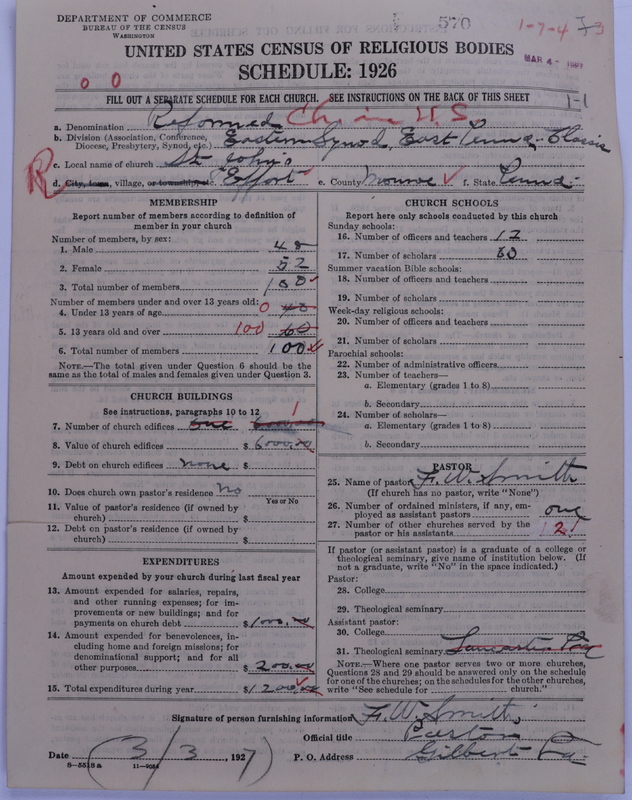 DEPARTMENT OF COMMERCE
BUREAU OF THE CENSUS
WASHINGTON
570
1-7-4
MAR 4 -
UNITED STATES CENSUS OF RELIGIOUS BODIES
SCHEDULE: 1926
0 0
FILL OUT A SEPARATE SCHEDULE FOR EACH CHURCH. SEE INSTRUCTIONS ON THE BACK OF THIS SHEET
1-1
a. Denomination Reformed Ch in U.S.
b. Division (Association, Conference, Diocese, Presbytery, Synod, etc.) Eastern Synod, East Penna. Classis
c. Local name of church St. John's
R
d. City, town, village, or township, etc. Effort e. County Monroe f. State Penna.
MEMBERSHIP
Report number of members according to definition of
member in your church
Number of members, by sex:
1. Male 48
2. Female 52
3. Total number of members 100
Number of members under and over 13 years old:
4. Under 13 years of age 0 40
5. 13 years old and over 100 60
6. Total number of members 100
NOTE.—The total given under Question 6 should be
same as the total of males and females given under Question 3.
CHURCH BUILDINGS
See instructions, paragraphs 10 to 12
1
7. Number of church edifices one
8. Value of church edifices $ 6000.00
9. Debt on church edifices none $
10. Does church own pastor's residence No
Yes or No
11. Value of pastor's residence (if owned by
church) $
12. Debt on pastor's residence (if owned by
church) $
EXPENDITURES
Amount expended by your church during last fiscal year
13. Amount expended for salaries, repairs,
and other running expenses; for im-
provements or new buildings; and for
payments on church debt $ 1000.00
14. Amount expended for benevolences, in-
cluding home and foreign missions; for
denominational support; and for all
other purposes $ 200.00
15. Total expenditures during year $ 1200.00
CHURCH SCHOOLS
Report here only schools conducted by this church
Sunday schools:
16. Number of officers and teachers 12
17. Number of scholars 80
Summer vacation Bible schools:
18. Number of officers and teachers
19. Number of scholars
Week-day religious schools:
20. Number of officers and teachers
21. Number of scholars
Parochial schools:
22. Number of administrative officers
23. Number of teachers—
a. Elementary (grades 1 to 8)
b. Secondary
24. Number of scholars—
a. Elementary (grades 1 to 8)
b. Secondary
PASTOR
25. Name of pastor F. W. Smith
(If church has no pastor, write "None")
26. Number of ordained ministers, if any, em-
ployed as assistant pastors one
27. Number of other churches served by the
pastor or his assistants 2
If pastor (or assistant pastor) is a graduate of a college or
theological seminary, give name of institution below. (If
not a graduate, write "No" in the space indicated.)
Pastor:
28. College
29. Theological seminary
Assistant pastor:
30. College
31. Theological seminary Lancaster Pa
NOTE.—Where one pastor serves two or more churches,
Questions 28 and 29 should be answered only on the schedule
for one of the churches; on the schedules for the other churches,
write "See schedule for church."
Signature of person furnishing information F. W. Smith
Official title Pastor
Date 3/3, 1927 P. O. Address Gilbert Pa.
8-5518a 11-9084